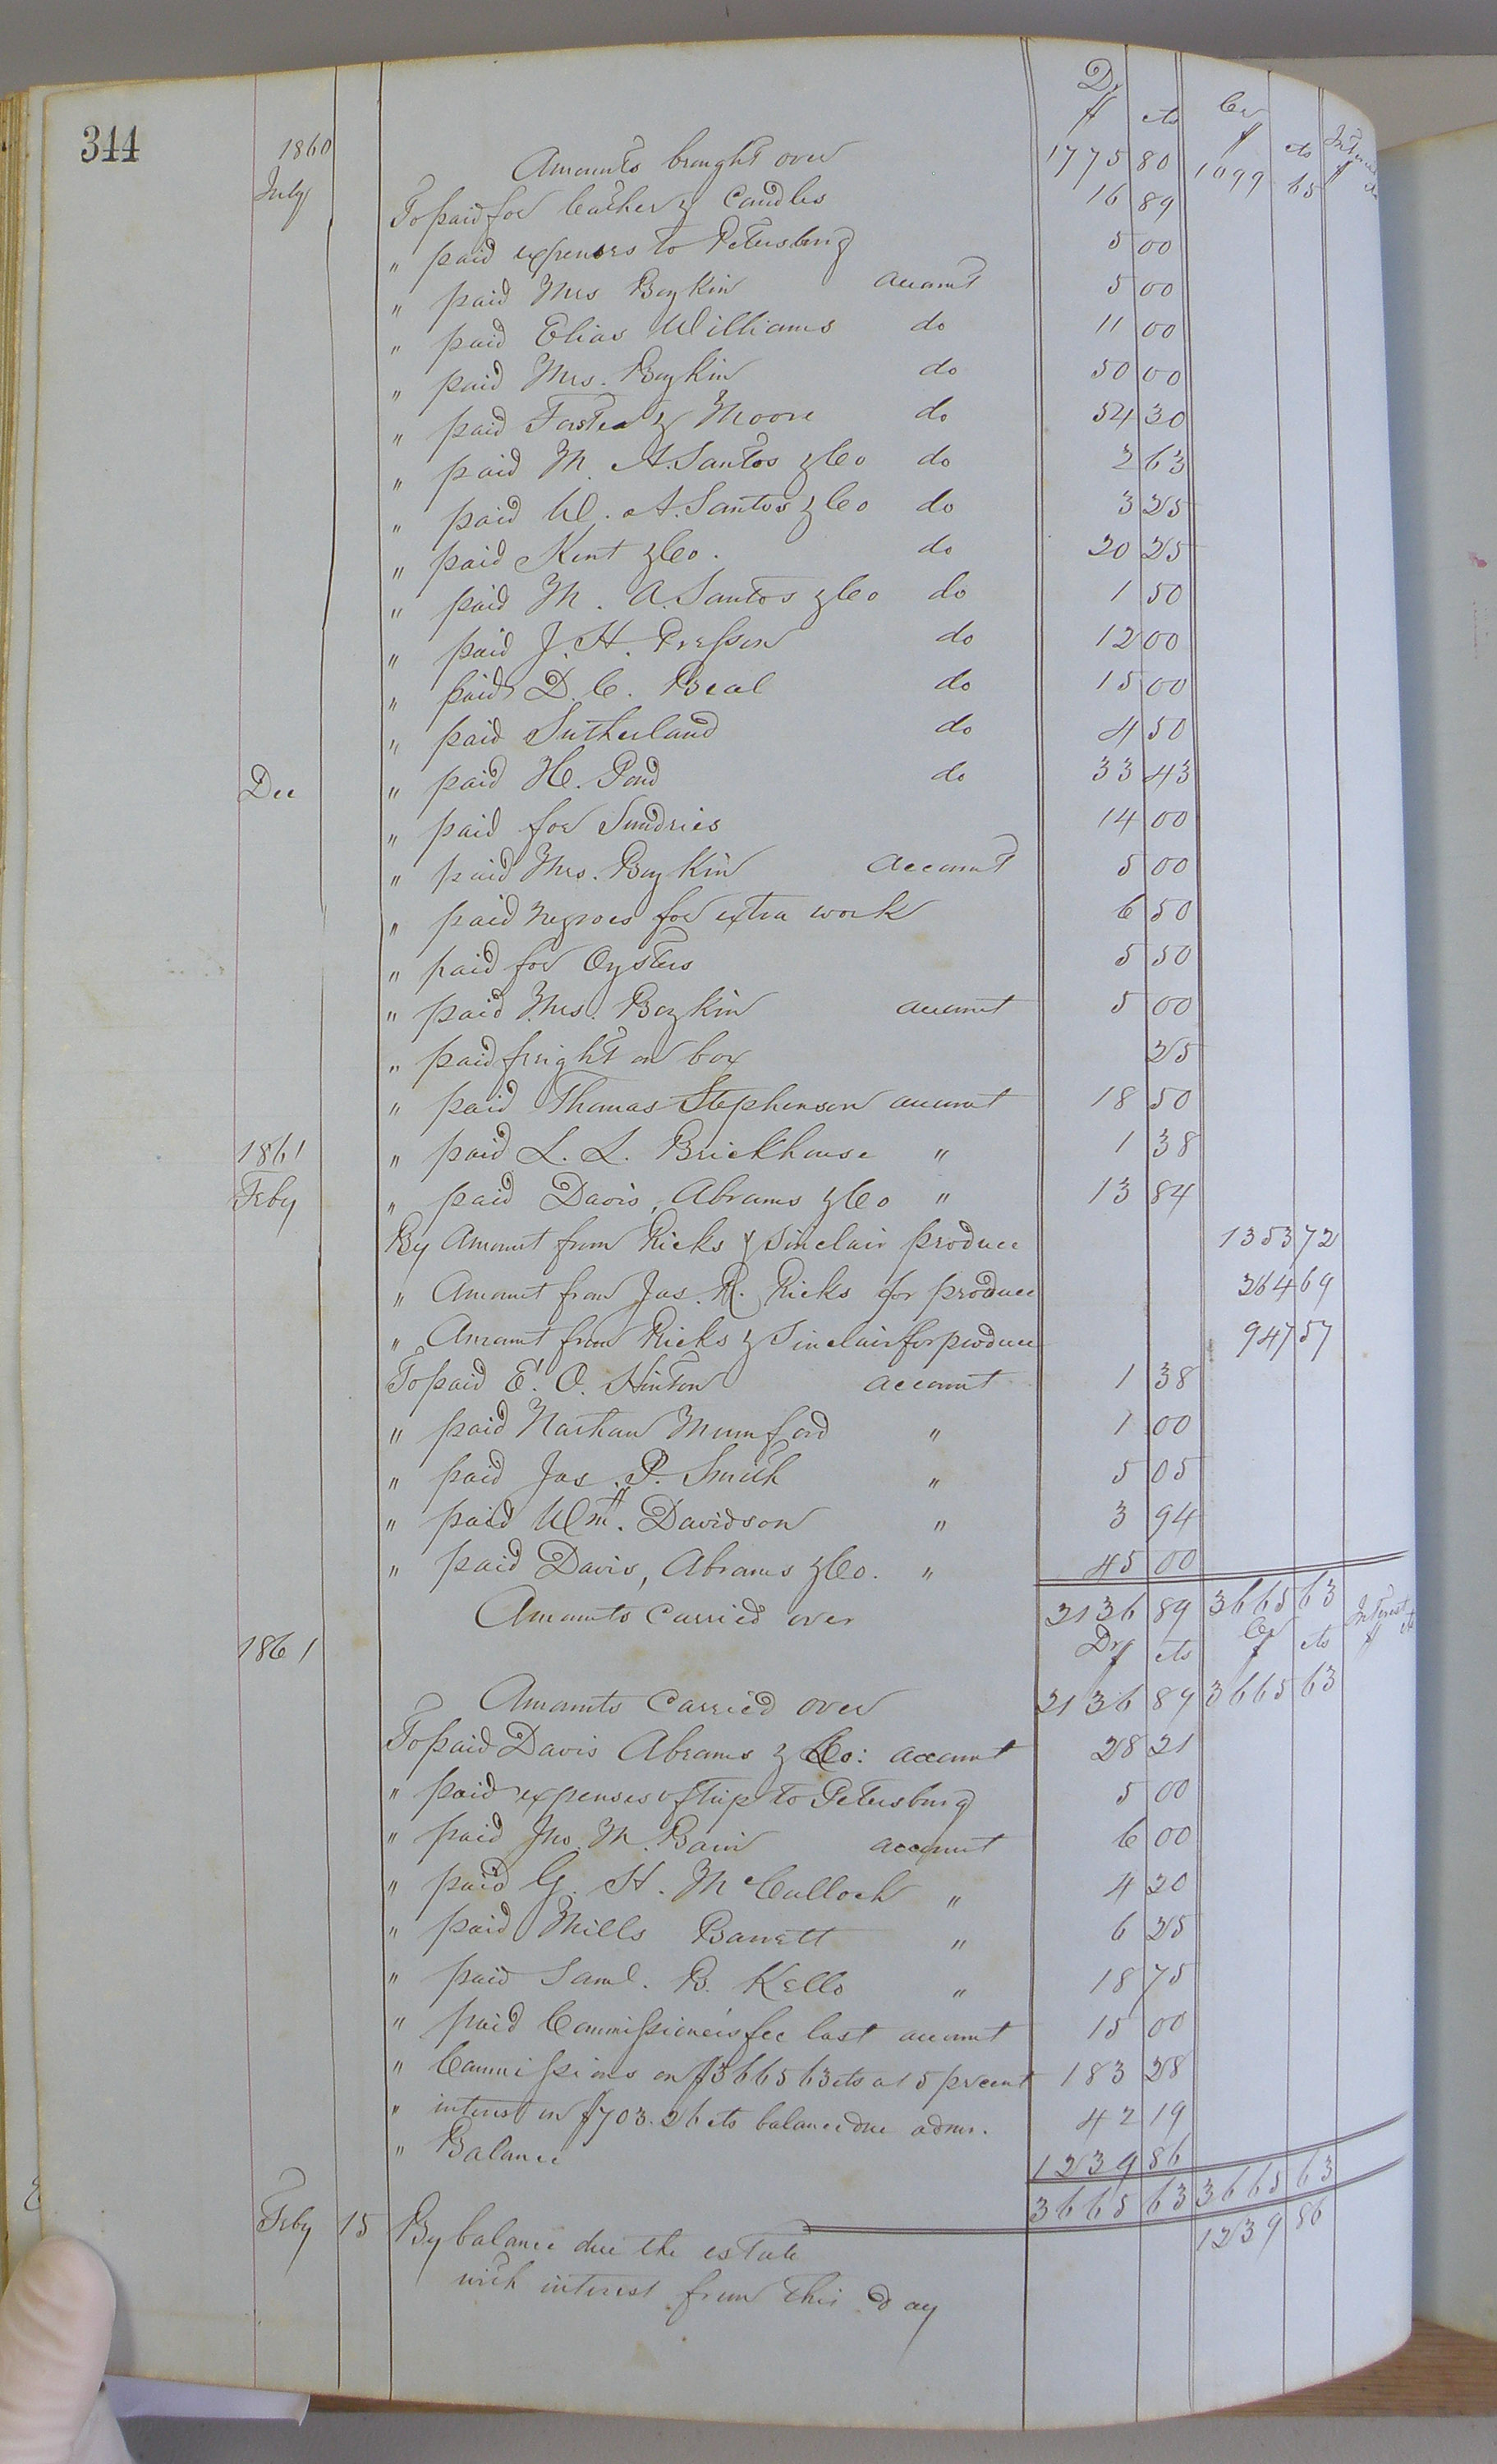 344
Dr Cr
$ cts $ cts Interest
1860 Amounts brought over 1775 80 1099 65
July To paid for leather & Candles 16 89
" paid expenses to Petersburg 5 00
" paid Mrs Boykin account 5 00
" paid Elias Williams do 11 00
" paid Mrs. Boykin do 50 00
" paid Foster & Moore do 54 30
" paid M. A. Santos & Co do 2 63
" paid W. A. Santos & Co do 3 25
" paid Kent & Co. do 20 25
" paid M. A. Santos & Co do 1 50
" paid J. H. Presson do 12 00
" paid D. C. Beal do 15 00
" paid Sutherland do 4 50
Dec " paid H. Pond do 33 43
" paid for Sundries 14 00
" paid Mrs. Boykin account 5 00
" paid negroes for extra work 6 50
" paid for Oysters 5 50
" paid Mrs. Boykin account 5 00
" paid freight on box 25
" paid Thomas Stephenson account 18 50
1861 " paid L. L. Brickhouse " 1 38
Feby " paid Davis, Abrams & Co " 13 84
By Amount from Ricks & Sinclair produce 1353 72
" Amount from Jas. R. Ricks for produce 264 69
" Amount from Ricks & Sinclair for produce 947 57
To paid E. O. Hinton account 1 38
" paid Nathan Mumford " 1 00
" paid Jas. P. Smith " 5 05
" paid Wm. H. Davidson " 3 94
" paid Davis, Abrams & Co. " 45 00
Amounts Carried over 2136 89 3665 63
1861 Dr $ cts Cr $ cts Interest $ cts
Amounts Carried over 2136 89 3665 63
To paid Davis Abrams & Co: account 28 21
" paid expenses of trip to Petersburg 5 00
" paid Jno. M. Bain account 6 00
" paid G. H. McCulloch " 4 20
" paid Mills Barrett " 6 25
" paid Saml. B. Kello " 18 75
" paid Commissioner's fee last account 15 00
" Commissions on $3665 63cts at 5 pr cent 183 28
" interest on $703.26cts balance due admr. 42 19
" Balance 1239 86
3665 63 3665 63
Feby 15 By balance due the estate 1239 86
with interest from this day